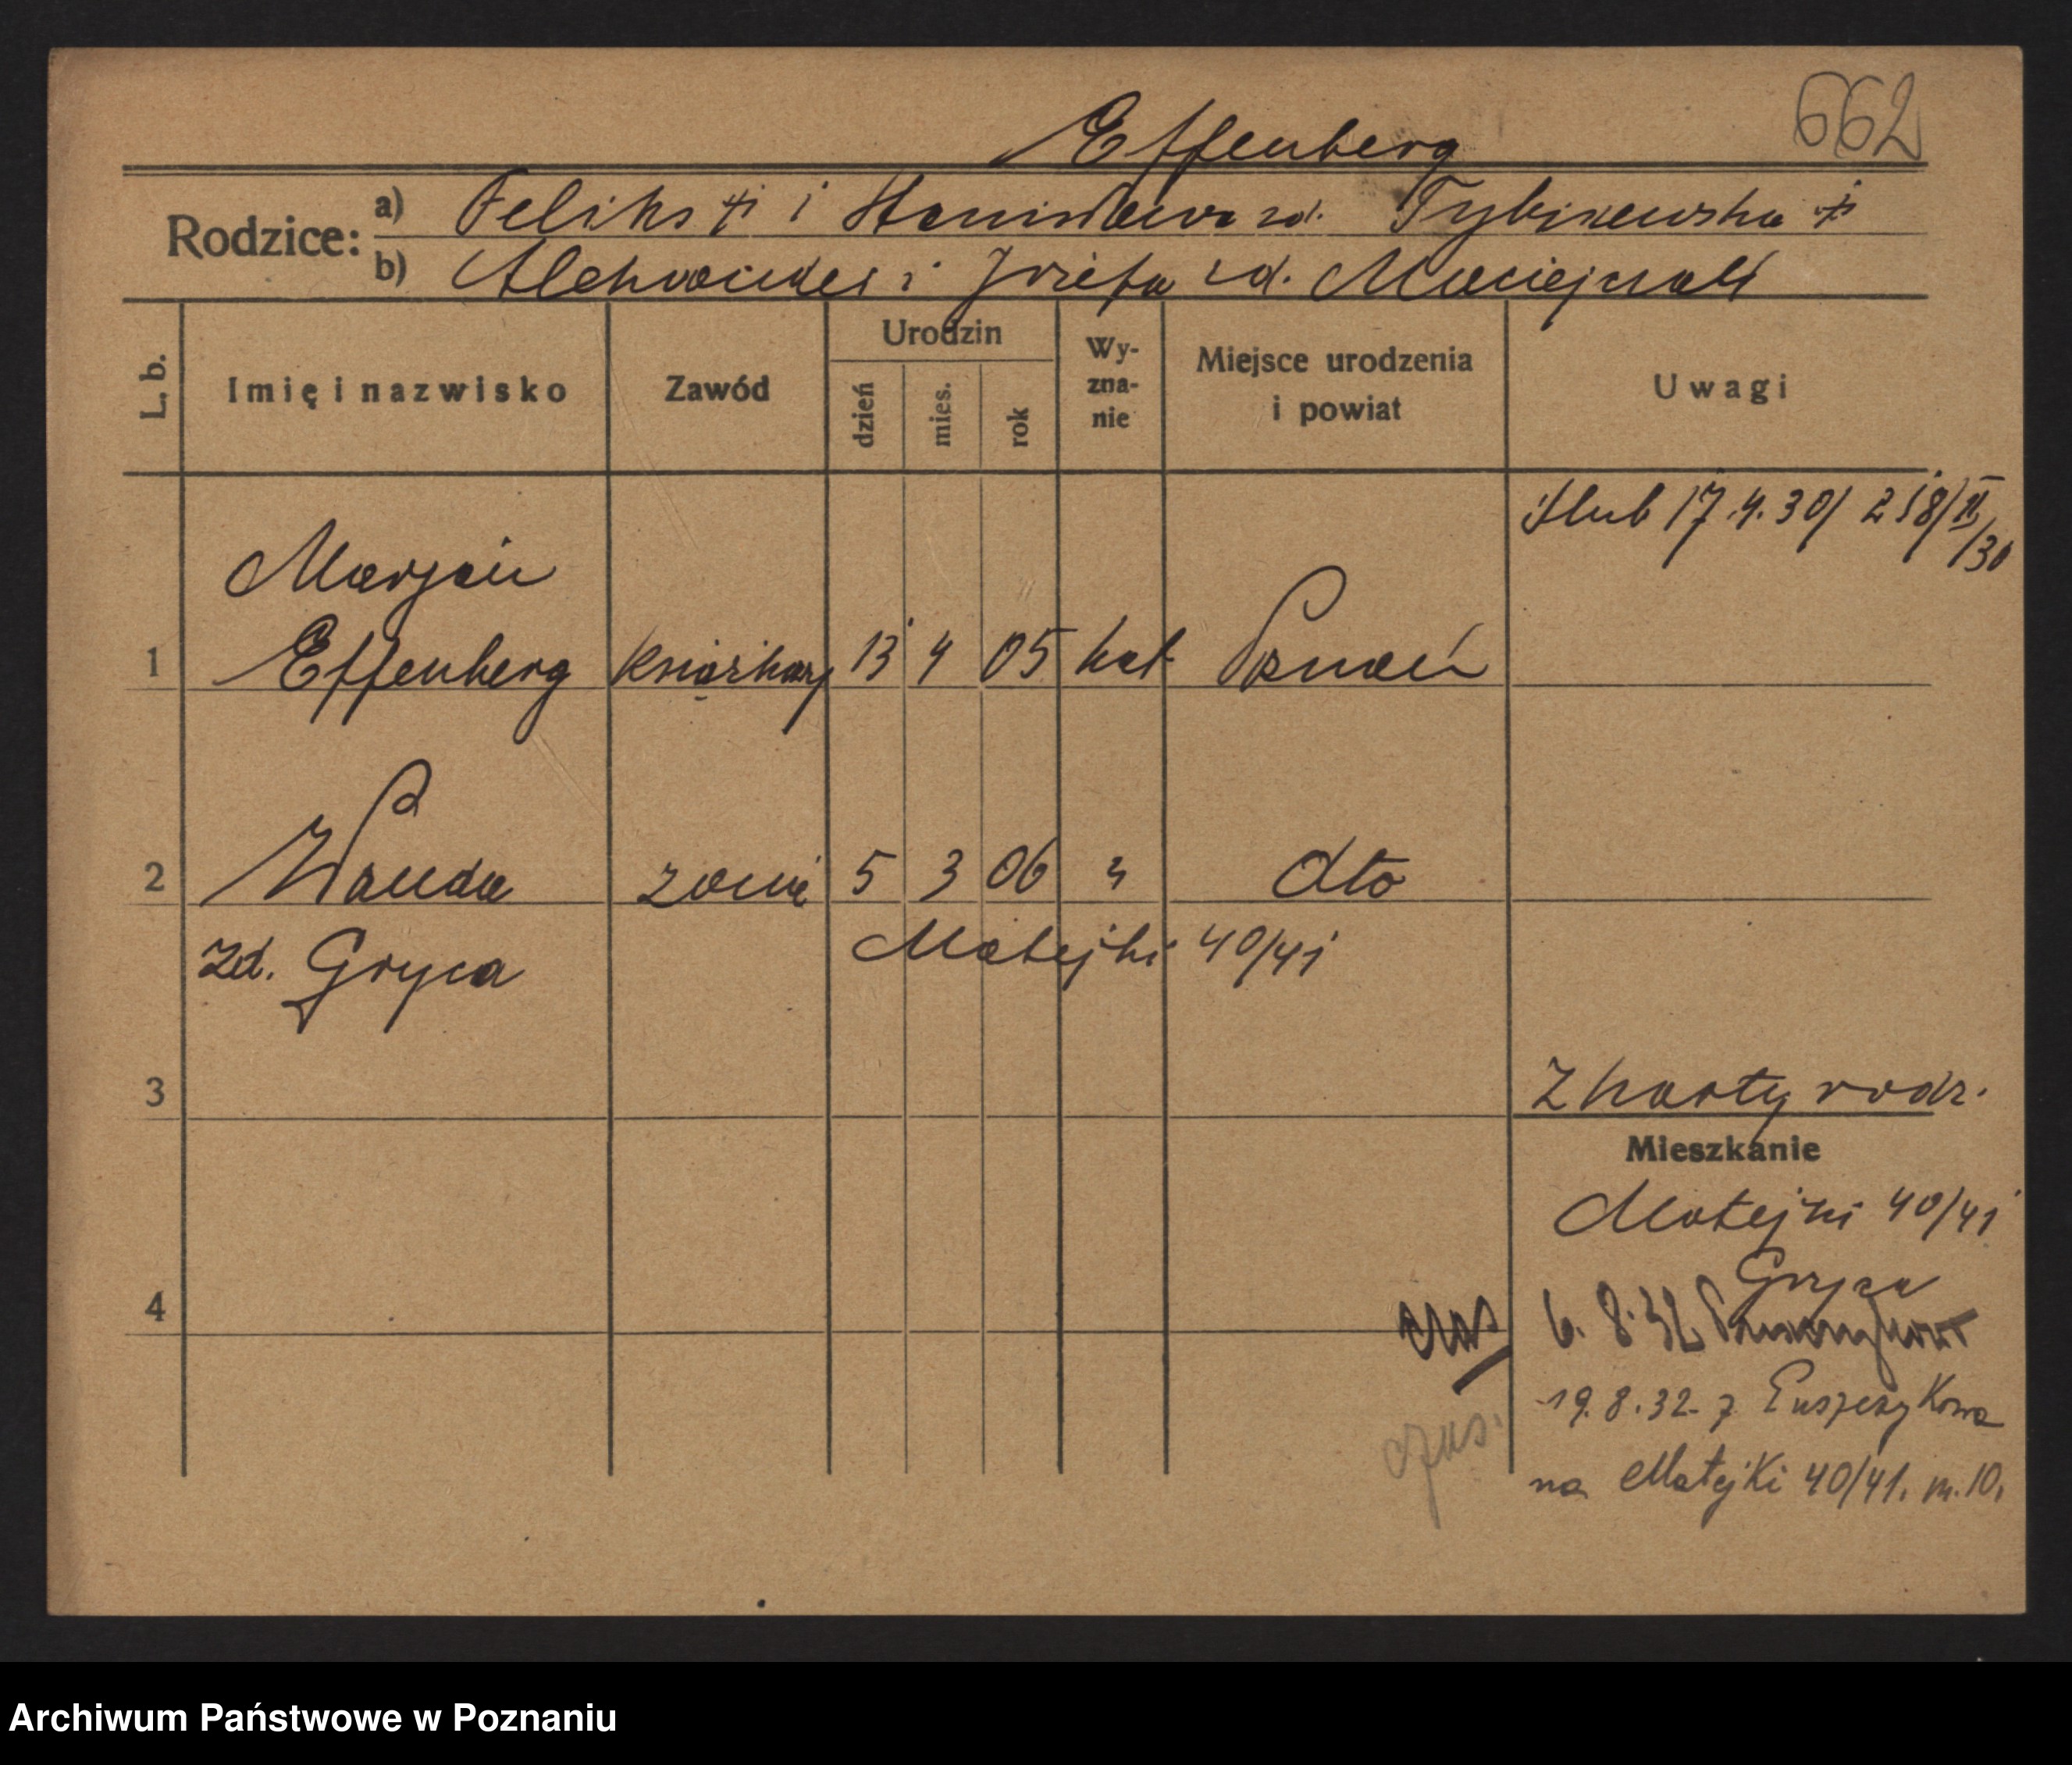 662
Effenberg
Rodzice: a) Feliks † i Stanisława zd. Tybiszewska †
b) Aleksander i Józefa zd. Maciejczak
L. b.
Imię i nazwisko
Zawód
Urodzin
dzień
mies.
rok
Wy-
zna-
nie
Miejsce urodzenia
i powiat
Uwagi
Ślub 17.4.30/ 218/II/30
Marjan
1 Effenberg księżkarz 13 4 05 kat Poznań
2 Wanda żona 5 3 06 " dto
zd. Gryca Matejki 40/41
3 Z karty rodz.
Mieszkanie
Matejki 40/41
Gryca
4 czas. 6.8.32
19.8.32. z Puszczykowa
czas. na Matejki 40/41. m. 10.
Archiwum Państwowe w Poznaniu